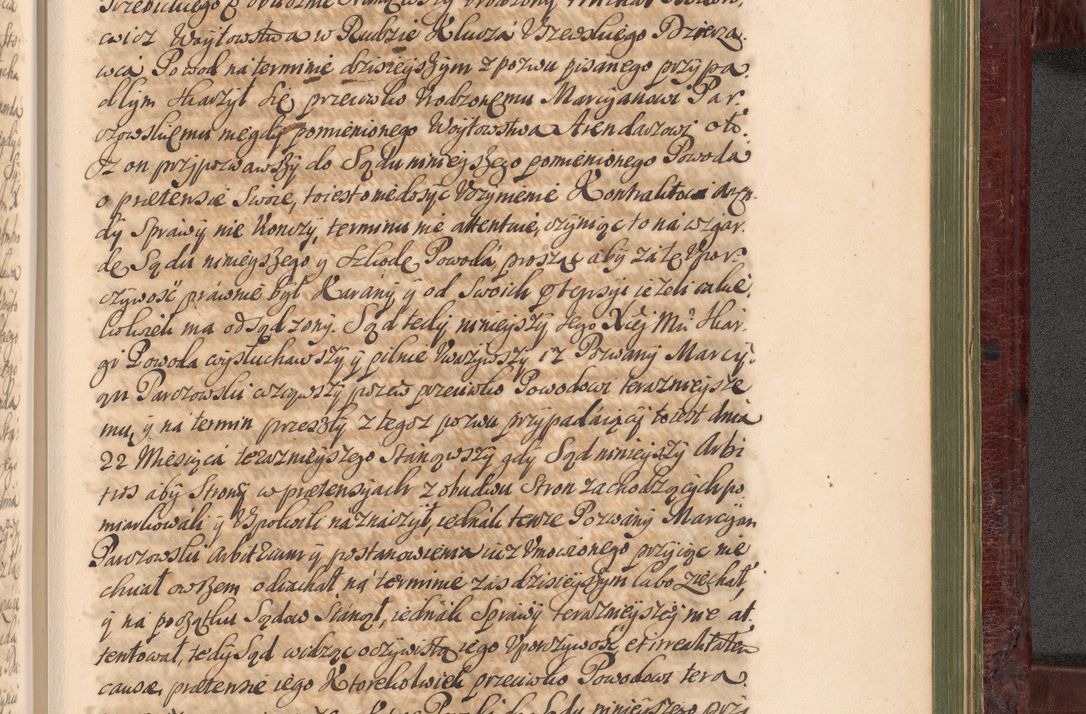 cwicz Woytowstwa w Rudzie Klucza Uszewskiego Dzierza.
wca Powod na terminie dzisieyszym z pozwu pisanego przypa.
dłym skarzył się przeciwko Urodzonemu Marcyanowi Par.
czowskiemu niegdy pomienionego Woytowstwa Arendarzowi oto.
Iz on przypozwawszy do Sądu ninieyszego pomienionego Powoda
o pretensie swoie, to iest o niedosyc Uczynienie Kontraktowi Aren
dy Sprawy nie konczy, terminu nie attentuie, czyniąc to na wzgar.
dę Sądu ninieyszego y szkodę Powoda, prosząc aby za tę Upor.
czywość prawnie był Karany y od swoich ptensyi ieżeli iakie
kolwiek ma odsądzony. Sąd tedy ninieyszy Jego Xcey Mci Skar
gi Powoda wysłuchawszy y pilnie Uwazywszy, iz Pozwany Marcy.
an Parczowski wziąwszy pozew przeciwko Powodowi teraznieysze
mu, y na termin przeszły z tegoz pozwu przypadaiący to iest dnia
22 Miesiąca teraznieyszego Stanąwszy gdy Sąd ninieyszy Arbi
tros aby Strony w pretensyiach z obudwu Stron zachodzących po
miarkowali y Uspokoili naznaczył, iednak tenze Pozwany Marcyan
Parczowski Arbitrium y postanowienia iuz Umowionego przyiąc nie
chciał owszem odiachał, na terminie zas dzisieyszym lubo ziechał,
y na początku Sądow Stanął, iednak Sprawy teraznieyszey nie at.
tentował, tedy Sąd widząc oczywistą iego Uporczywość, et irrealitatem
causae, pretensie iego Ktorekolwiek przeciwko Powodowi tera.